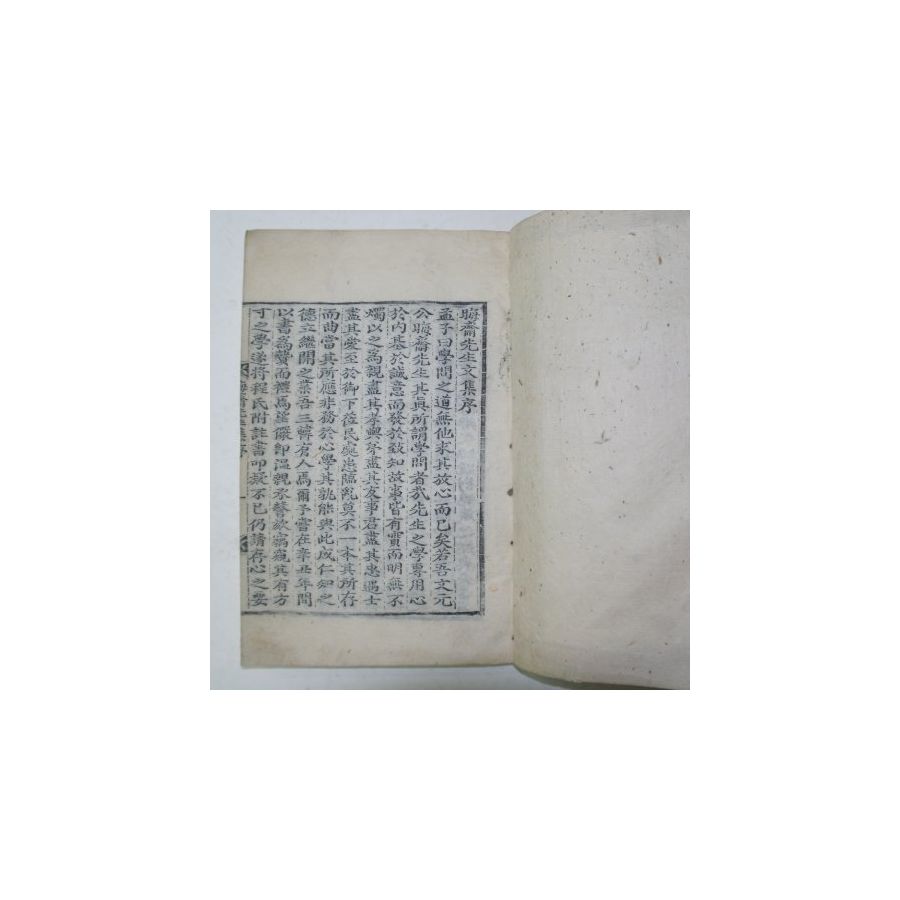 晦齋先生文集序
孟子曰學問之道無他求其放心而已矣若吾文元
公晦齋先生其眞所謂學問者哉先生之學專用心
於內基於誠意而發於致知故事皆有實而明無不
燭以之爲親盡其孝與弟盡其友事君盡其忠遇士
盡其愛至於御下莅民處患臨亂莫不一本其所存
而曲當其所應非務於心學其孰能與此成仁知之
德立繼開之業吾三韓有人焉爾予嘗在辛丑年間
以書爲贄而禮焉望儼卽溫親承謦欬竊窺其有方
寸之學遂將程氏附註書叩疑不已仍請存心之要